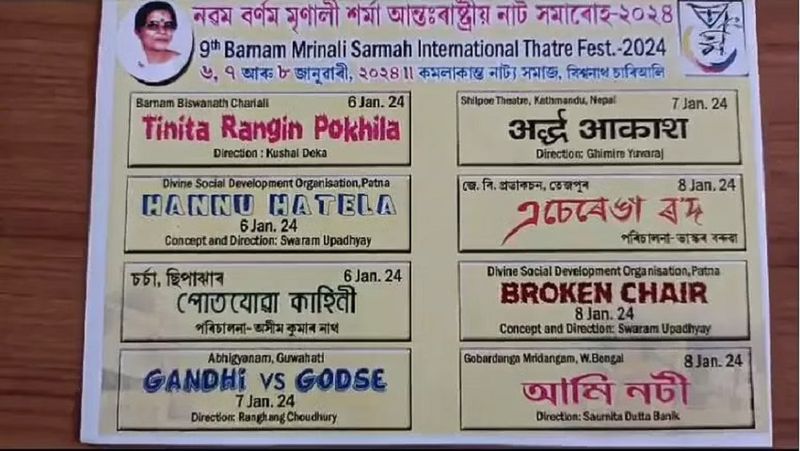 নৱম বৰ্ণম মৃণালী শৰ্মা আন্তঃৰাষ্ট্ৰীয় নাট সমাৰোহ-২০২৪
9th Barnam Mrinali Sarmah International Thatre Fest.-2024
৬, ৭ আৰু ৮ জানুৱাৰী, ২০২৪ ৷৷ কমলাকান্ত নাট্য সমাজ, বিশ্বনাথ চাৰিআলি
Barnam Biswanath Chariali 6 Jan. 24
Tinita Rangin Pokhila
Direction : Kushal Deka
Divine Social Development Organisation,Patna
HANNU HATELA
6 Jan. 24
Concept and Direction: Swaram Upadhyay
চৰ্চা, ছিপাঝাৰ 6 Jan. 24
পোতযোৱা কাহিনী
পৰিচালনা-অসীম কুমাৰ নাথ
Abhigyanam, Guwahati
GANDHi VS GODSE
7 Jan. 24
Direction: Ranghang Choudhury
Shilpee Theatre, Kathmandu, Nepal 7 Jan. 24
अर्द्ध आकाश
Direction: Ghimire Yuvaraj
জে. বি. প্ৰডাকচন, তেজপুৰ 8 Jan. 24
এচেৰেঙা ৰ'দ
পৰিচালনা-ভাস্কৰ বৰুৱা
Divine Social Development Organisation,Patna
BROKEN CHAIR
8 Jan. 24
Concept and Direction: Swaram Upadhyay
Gobardanga Mridangam, W.Bengal 8 Jan. 24
আমি নটী
Direction: Saurnita Dutta Banik